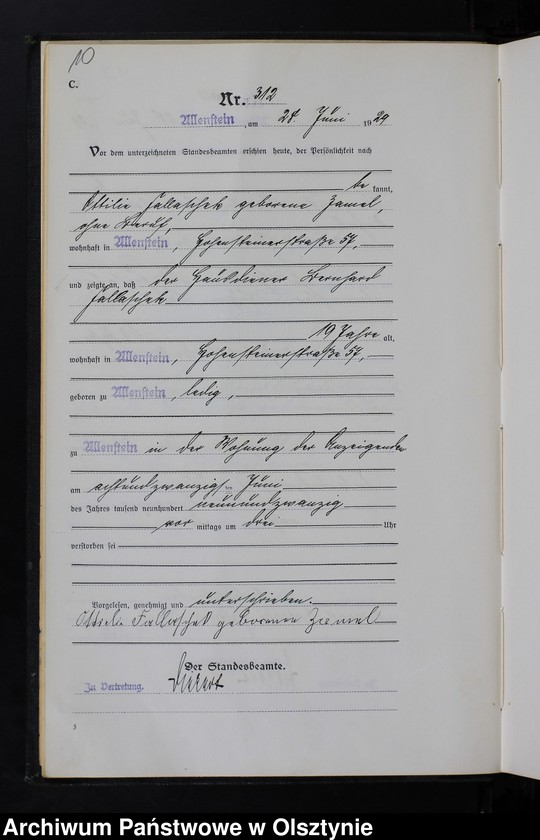 10
C.
Nr. 312
Allenstein, am 28. Juni 1929
Vor dem unterzeichneten Standesbeamten erschien heute, der Persönlichkeit nach
be kannt,
Ottilie Fallaschek geborene Zamel,
ohne Beruf,
wohnhaft in Allenstein, Hohensteinerstraße 57,
und zeigte an, daß der Hausdiener Bernhard
Fallaschek
19 Jahre alt,
wohnhaft in Allenstein, Hohensteinerstraße 57,
geboren zu Allenstein, ledig,
zu Allenstein in der Wohnung der Anzeigenden
am achtundzwanzigsten Juni
des Jahres tausend neunhundert neunundzwanzig
vor mittags um drei Uhr
verstorben sei
Vorgelesen, genehmigt und unterschrieben.
Ottilie Fallaschek geborene Zamel
Der Standesbeamte.
In Vertretung.
3
Archiwum Państwowe w Olsztynie